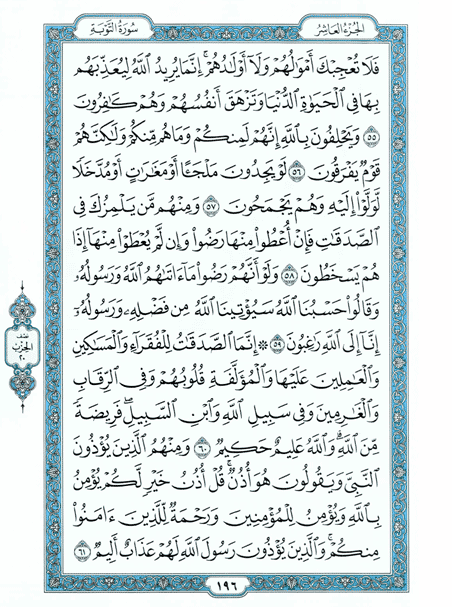 الجزء العاشر
سورة التوبة
فَلَا تُعْجِبْكَ أَمْوَٰلُهُمْ وَلَآ أَوْلَٰدُهُمْ ۚ إِنَّمَا يُرِيدُ ٱللَّهُ لِيُعَذِّبَهُم
بِهَا فِى ٱلْحَيَوٰةِ ٱلدُّنْيَا وَتَزْهَقَ أَنفُسُهُمْ وَهُمْ كَٰفِرُونَ
٥٥ وَيَحْلِفُونَ بِٱللَّهِ إِنَّهُمْ لَمِنكُمْ وَمَا هُم مِّنكُمْ وَلَٰكِنَّهُمْ
قَوْمٌ يَفْرَقُونَ ٥٦ لَوْ يَجِدُونَ مَلْجَـًٔا أَوْ مَغَٰرَٰتٍ أَوْ مُدَّخَلًا
لَّوَلَّوْا۟ إِلَيْهِ وَهُمْ يَجْمَحُونَ ٥٧ وَمِنْهُم مَّن يَلْمِزُكَ فِى
ٱلصَّدَقَٰتِ فَإِنْ أُعْطُوا۟ مِنْهَا رَضُوا۟ وَإِن لَّمْ يُعْطَوْا۟ مِنْهَآ إِذَا
هُمْ يَسْخَطُونَ ٥٨ وَلَوْ أَنَّهُمْ رَضُوا۟ مَآ ءَاتَىٰهُمُ ٱللَّهُ وَرَسُولُهُۥ
وَقَالُوا۟ حَسْبُنَا ٱللَّهُ سَيُؤْتِينَا ٱللَّهُ مِن فَضْلِهِۦ وَرَسُولُهُۥٓ
إِنَّآ إِلَى ٱللَّهِ رَٰغِبُونَ ٥٩ ۞ إِنَّمَا ٱلصَّدَقَٰتُ لِلْفُقَرَآءِ وَٱلْمَسَٰكِينِ
وَٱلْعَٰمِلِينَ عَلَيْهَا وَٱلْمُؤَلَّفَةِ قُلُوبُهُمْ وَفِى ٱلرِّقَابِ
وَٱلْغَٰرِمِينَ وَفِى سَبِيلِ ٱللَّهِ وَٱبْنِ ٱلسَّبِيلِ ۖ فَرِيضَةً
مِّنَ ٱللَّهِ ۗ وَٱللَّهُ عَلِيمٌ حَكِيمٌ ٦٠ وَمِنْهُمُ ٱلَّذِينَ يُؤْذُونَ
ٱلنَّبِىَّ وَيَقُولُونَ هُوَ أُذُنٌ ۚ قُلْ أُذُنُ خَيْرٍ لَّكُمْ يُؤْمِنُ
بِٱللَّهِ وَيُؤْمِنُ لِلْمُؤْمِنِينَ وَرَحْمَةٌ لِّلَّذِينَ ءَامَنُوا۟
مِنكُمْ ۚ وَٱلَّذِينَ يُؤْذُونَ رَسُولَ ٱللَّهِ لَهُمْ عَذَابٌ أَلِيمٌ ٦١
نصف
الحزب
٢٠
١٩٦